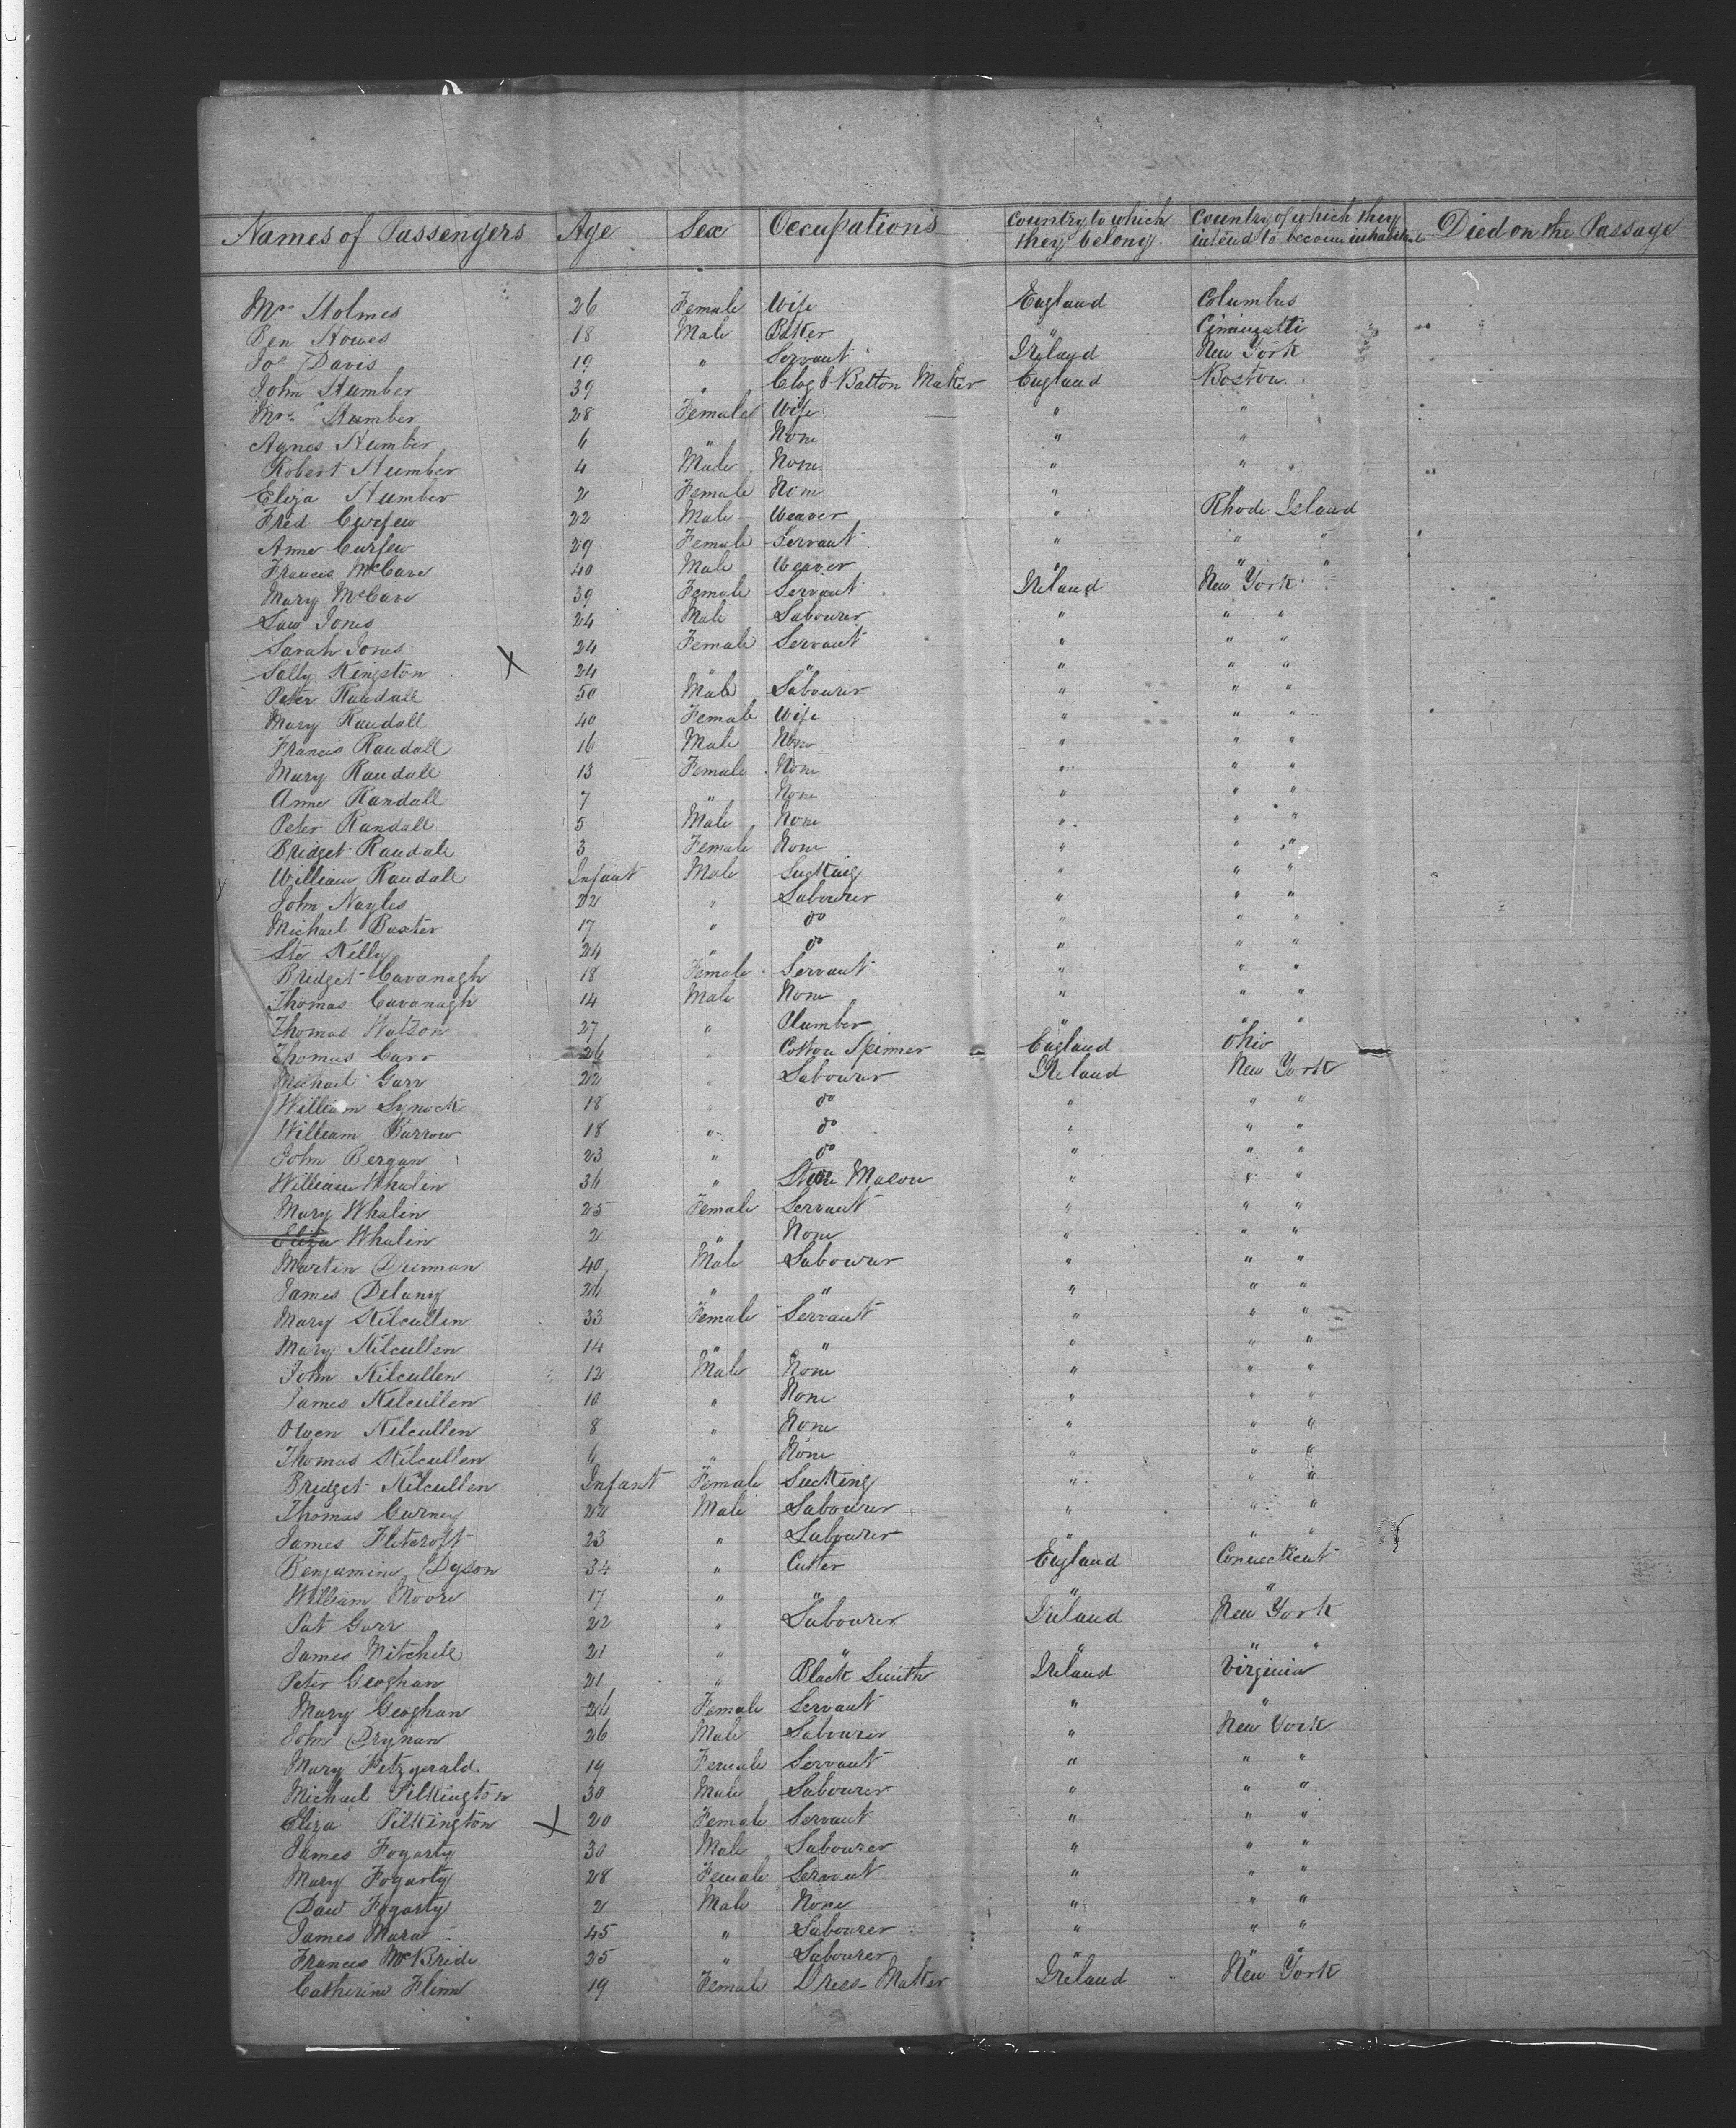 Names of Passengers Age Sex Occupations Country to which they belong Country of which they intend to become inhabitants Died on the Passage
Mrs Holmes 26 Female Wife England Columbus
Ben Howes 18 Male Baker " Cininzatti
Jos Davis 19 " Servant Ireland New York
John Humber 39 " Clog & Batton Maker England Boston
Mrs Humber 28 Female Wife " "
Agnes Humber 6 " None " "
Robert Humber 4 Male None " " "
Eliza Humber 2 Female None " "
Fred Curfew 22 Male Weaver " Rhode Island
Anne Curfew 29 Female Servant " " "
Francis McCave 40 Male Weaver " " "
Mary McCave 39 Female Servant Ireland New York
Law Jones 24 Male Labourer " " "
Sarah Jones 24 Female Servant " " "
Sally Kingston X 24 " " " " "
Peter Randall 50 Male Labourer " " "
Mary Randall 40 Female Wife " " "
Francis Randall 16 Male None " " "
Mary Randall 13 Female None " " "
Anne Randall 7 " None " " "
Peter Randall 5 Male None " " "
Bridget Randall 3 Female None " " "
William Randall Infant Male Sucking " " "
John Nayles 22 " Labourer " " "
Michael Baxter 17 " Do " " "
Ste Kelly 24 " Do " " "
Bridget Cavanagh 18 Female Servant " " "
Thomas Cavanagh 14 Male None " " "
Thomas Watson 27 " Plumber " " "
Thomas Carr 26 " Cotton Spinner England Ohio
Michael Garr 22 " Labourer Ireland New York
William Synock 18 " Do " " "
William Burrow 18 " Do " " "
John Bergan 23 " Do " " "
William Whalin 36 " Stone Mason " " "
Mary Whalin 25 Female Servant " " "
Eliza Whalin 2 " None " " "
Martin Drennan 40 Male Labourer " " "
James Delany 26 " " " " "
Mary Kilcullen 33 Female Servant " " "
Mary Kilcullen 14 " " " " "
John Kilcullen 12 Male None " " "
James Kilcullen 10 " None " " "
Owen Kilcullen 8 " None " " "
Thomas Kilcullen 6 " None " " "
Bridget Kilcullen Infant Female Sucking " " "
Thomas Curney 22 Male Labourer " " "
James Flitcroft 23 " Labourer " " "
Benjamin Dyson 34 " Cutler England Connecticut
William Moore 17 " " " "
Pat Garr 22 " Labourer Ireland New York
James Mitchell 21 " " " " "
Peter Geoghan 21 " Black Smith Ireland Virginia
Mary Geoghan 26 Female Servant " "
John Drynan 26 Male Labourer " New York
Mary Fitzgerald 19 Female Servant " " "
Michael Pilkington 30 Male Labourer " " "
Eliza Pilkington X 20 Female Servant " " "
James Fogarty 30 Male Labourer " " "
Mary Fogarty 28 Female Servant " " "
Dan Fogarty 2 Male None " " "
James Mara 45 " Labourer " " "
Francis McBride 25 " Labourer " " "
Catherine Flinn 19 Female Dress Maker Ireland New York